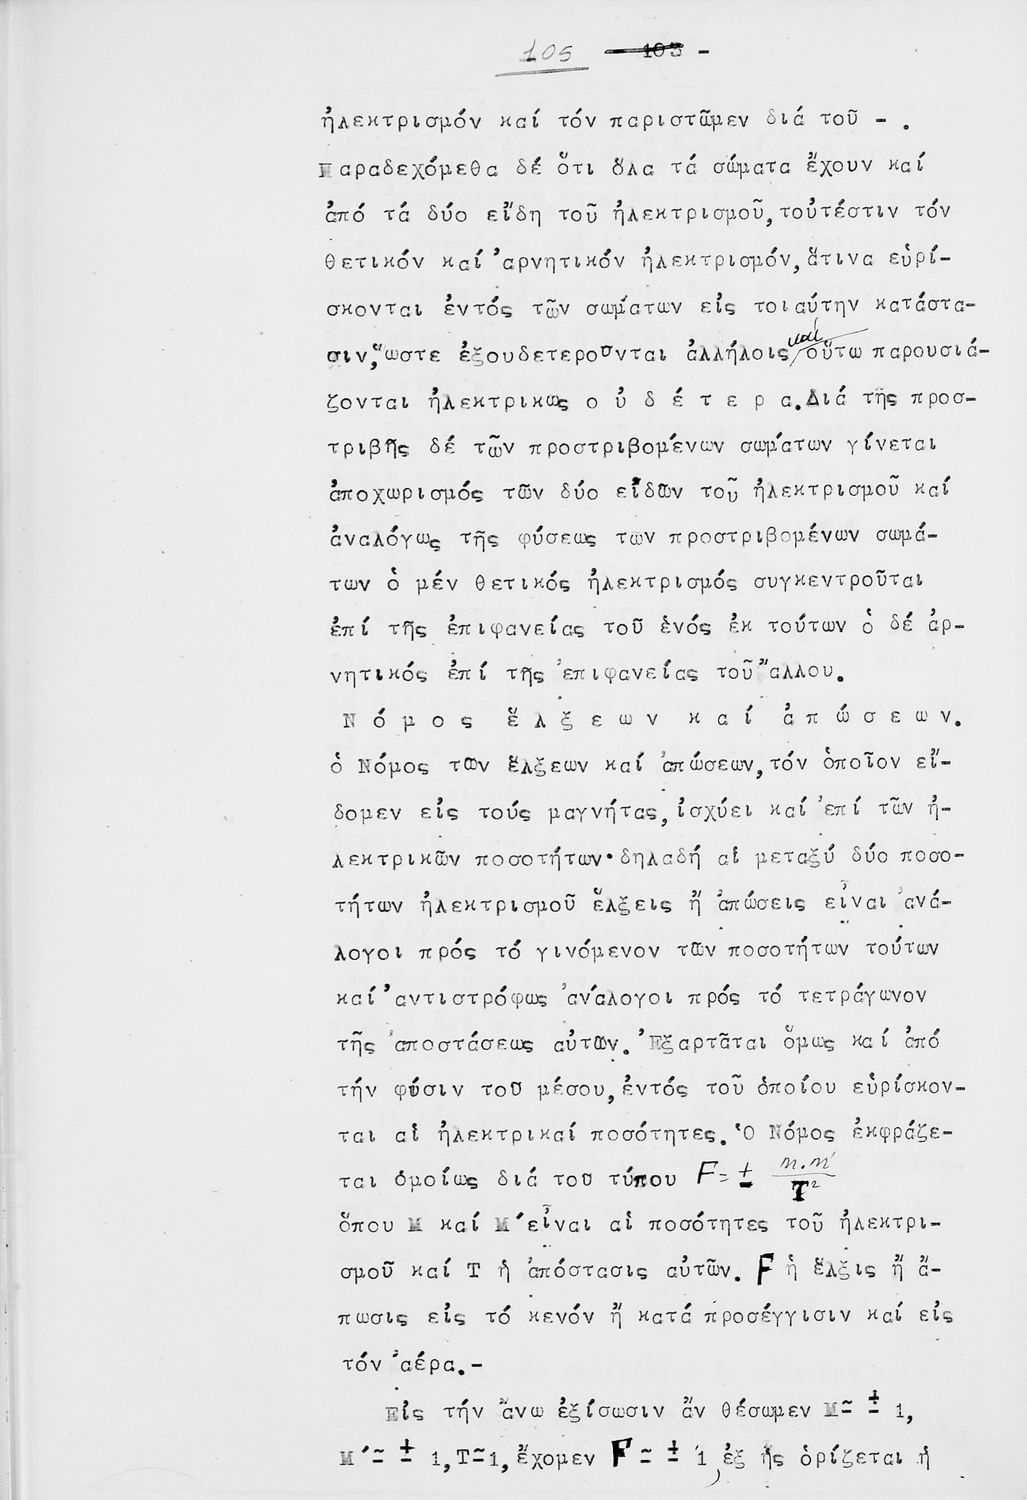 105 103 -
ἠλεκτρισμόν καί τόν παριστῶμεν διά τοῦ - .
Παραδεχόμεθα δέ ὅτι ὅλα τά σώματα ἔχουν καί
ἀπό τά δύο εἴδη τοῦ ἠλεκτρισμοῦ, τοὐτέστιν τόν
θετικόν καί ἀρνητικόν ἠλεκτρισμόν, ἅτινα εὑρί-
σκονται ἐντός τῶν σωμάτων εἰς τοιαύτην κατάστα-
σιν, ὥστε ἐξουδετεροῦνται ἀλλήλοις καί οὕτω παρουσιά-
ζονται ἠλεκτρικως ο ὐ δ έ τ ε ρ α. Διά τῆς προσ-
τριβῆς δέ τῶν προστριβομένων σωμάτων γίνεται
ἀποχωρισμός τῶν δύο εἰδῶν τοῦ ἠλεκτρισμοῦ καί
ἀναλόγως τῆς φύσεως των προστριβομένων σωμά-
των ὁ μέν θετικός ἠλεκτρισμός συγκεντροῦται
ἐπί τῆς ἐπιφανείας τοῦ ἑνός ἐκ τούτων ὁ δέ ἀρ-
νητικός ἐπί τῆς ἐπιφανείας τοῦ ἄλλου.
Ν ό μ ο ς ἕ λ ξ ε ω ν κ α ί ἀ π ώ σ ε ω ν.
ὁ Νόμος τῶν ἕλξεων καί ἀπώσεων, τόν ὁποῖον εἴ-
δομεν εἰς τούς μαγνήτας, ἰσχύει καί ἐπί τῶν ἠ-
λεκτρικῶν ποσοτήτων· δηλαδή αἱ μεταξύ δύο ποσο-
τήτων ἠλεκτρισμοῦ ἕλξεις ἤ ἀπώσεις εἶναι ἀνά-
λογοι πρός τό γινόμενον τῶν ποσοτήτων τούτων
καί ἀντιστρόφως ἀνάλογοι πρός τό τετράγωνον
τῆς ἀποστάσεως αὐτῶν. Ἐξαρτᾶται ὅμως καί ἀπό
τήν φύσιν τοῦ μέσου, ἐντός τοῦ ὁποίου εὑρίσκον-
ται αἱ ἠλεκτρικαί ποσότητες. Ὁ Νόμος ἐκφράζε-
ται ὁμοίως διά του τύπου F = ± m.m' / T²
ὅπου Μ καί Μ' εἶναι αἱ ποσότητες τοῦ ἠλεκτρι-
σμοῦ καί Τ ἡ ἀπόστασις αὐτῶν. F ἡ ἕλξις ἤ ἄ-
πωσις εἰς τό κενόν ἤ κατά προσέγγισιν καί εἰς
τόν ἀέρα.-
Εἰς τήν ἄνω ἐξίσωσιν ἄν θέσωμεν Μ= ± 1,
Μ'= ± 1, Τ=1, ἔχομεν F = ± 1, ἐξ ἧς ὁρίζεται ἡ